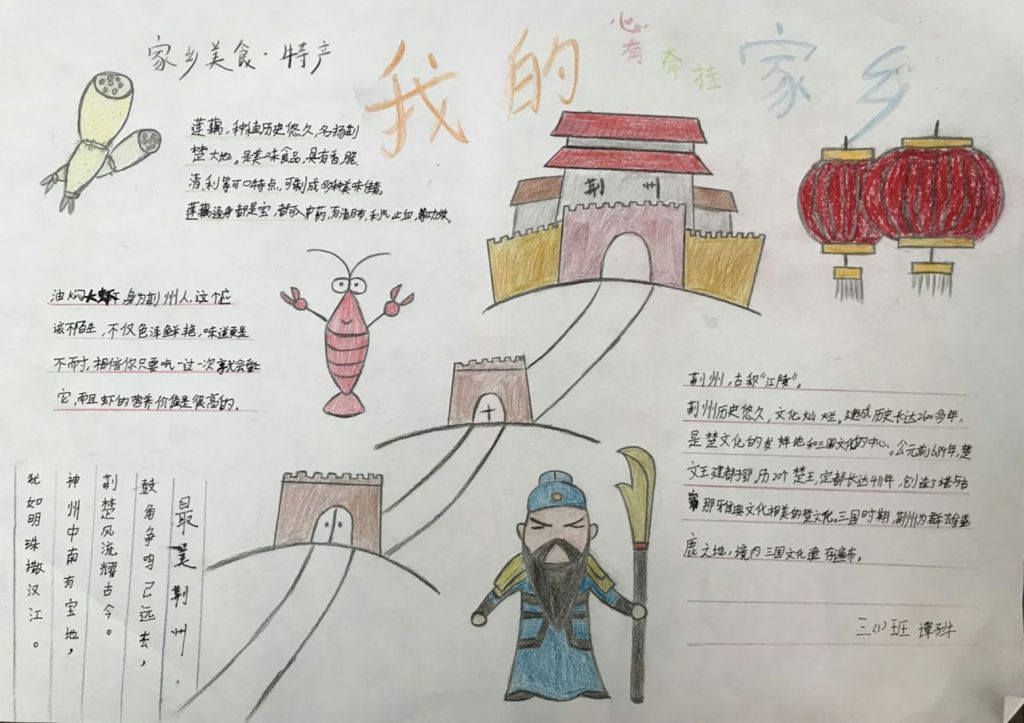 我的家乡
心有
牵挂
家乡美食·特产
莲藕，种植历史悠久，名扬荆
楚大地。是美味食品，具有香、脆、
清利等可口特点，可制成多种美味佳肴。
莲藕通身都是宝，都可入中药，有消瘀，利尿，止血，等功效。
荆州
油焖大虾，身为荆州人，这个应
该不陌生，不仅色泽鲜艳，味道更是
不而寸，相信你只要吃一过一次就会爱
它，而且虾的营养价值是很高的。
荆州，古称“江陵”。
荆州历史悠久，文化灿烂。建城历史长达2600多年，
是楚文化的发祥地和三国文化的中心。公元前689年，楚
文王建都于郢，历20个楚王，定都长达411年，创造了堪与古
希那牙雅典文化相美的楚文化。三国时期，荆州为群雄逐
鹿之地，境内三国文化遗存遍布。
三（1）班 谭
最美荆州
鼓角争鸣已远去，
荆楚风流耀古今。
神州中南有宝地，
犹如明珠撒汉江。